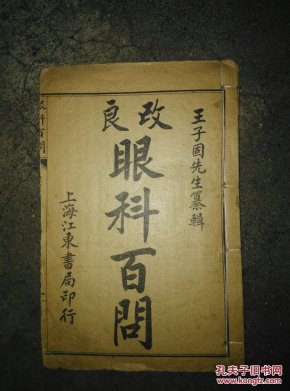 改良
眼科百問
王子固先生纂輯
上海江東書局印行
眼科百問
孔夫子旧书网